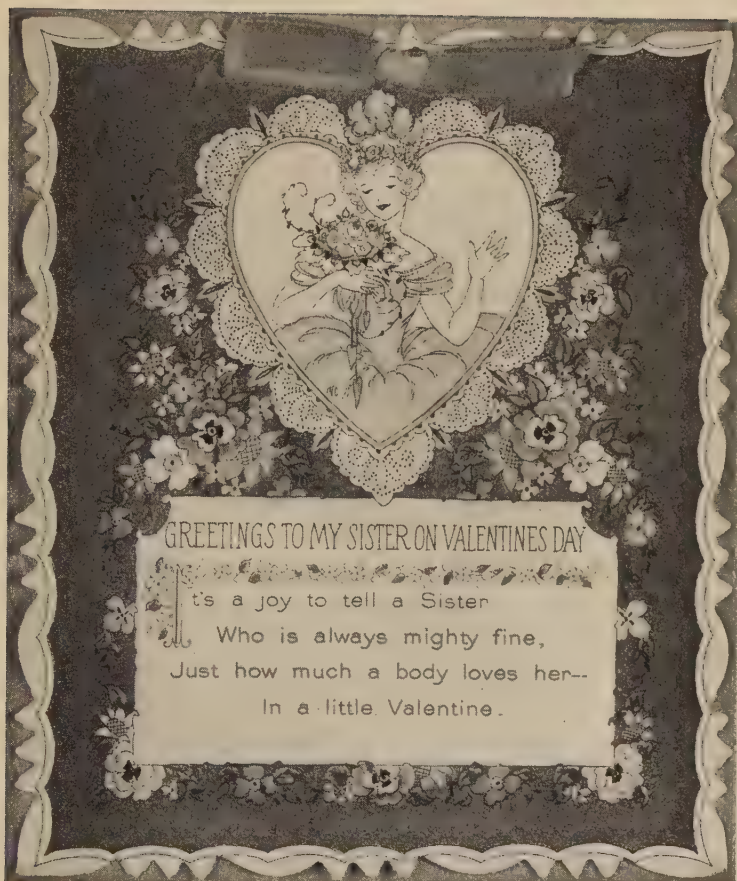 GREETINGS TO MY SISTER ON VALENTINES DAY
It's a joy to tell a Sister
Who is always mighty fine,
Just how much a body loves her--
In a little Valentine.